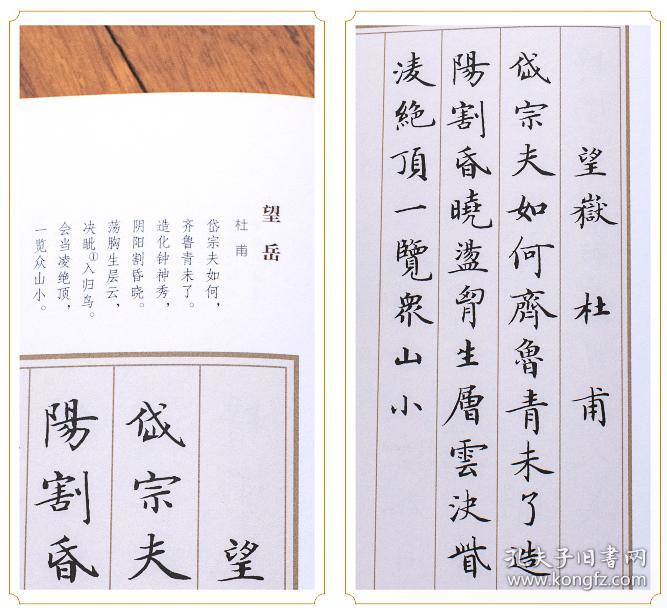 望岳
杜甫
岱宗夫如何，
齐鲁青未了。
造化钟神秀，
阴阳割昏晓。
荡胸生层云，
决眦①入归鸟。
会当凌绝顶，
一览众山小。
望
岱宗夫
陽割昏
望嶽 杜甫
岱宗夫如何齊魯青未了造
陽割昏曉盪胷生層雲決眥
淩絶頂一覽眾山小
孔夫子旧书网
www.kongfz.com